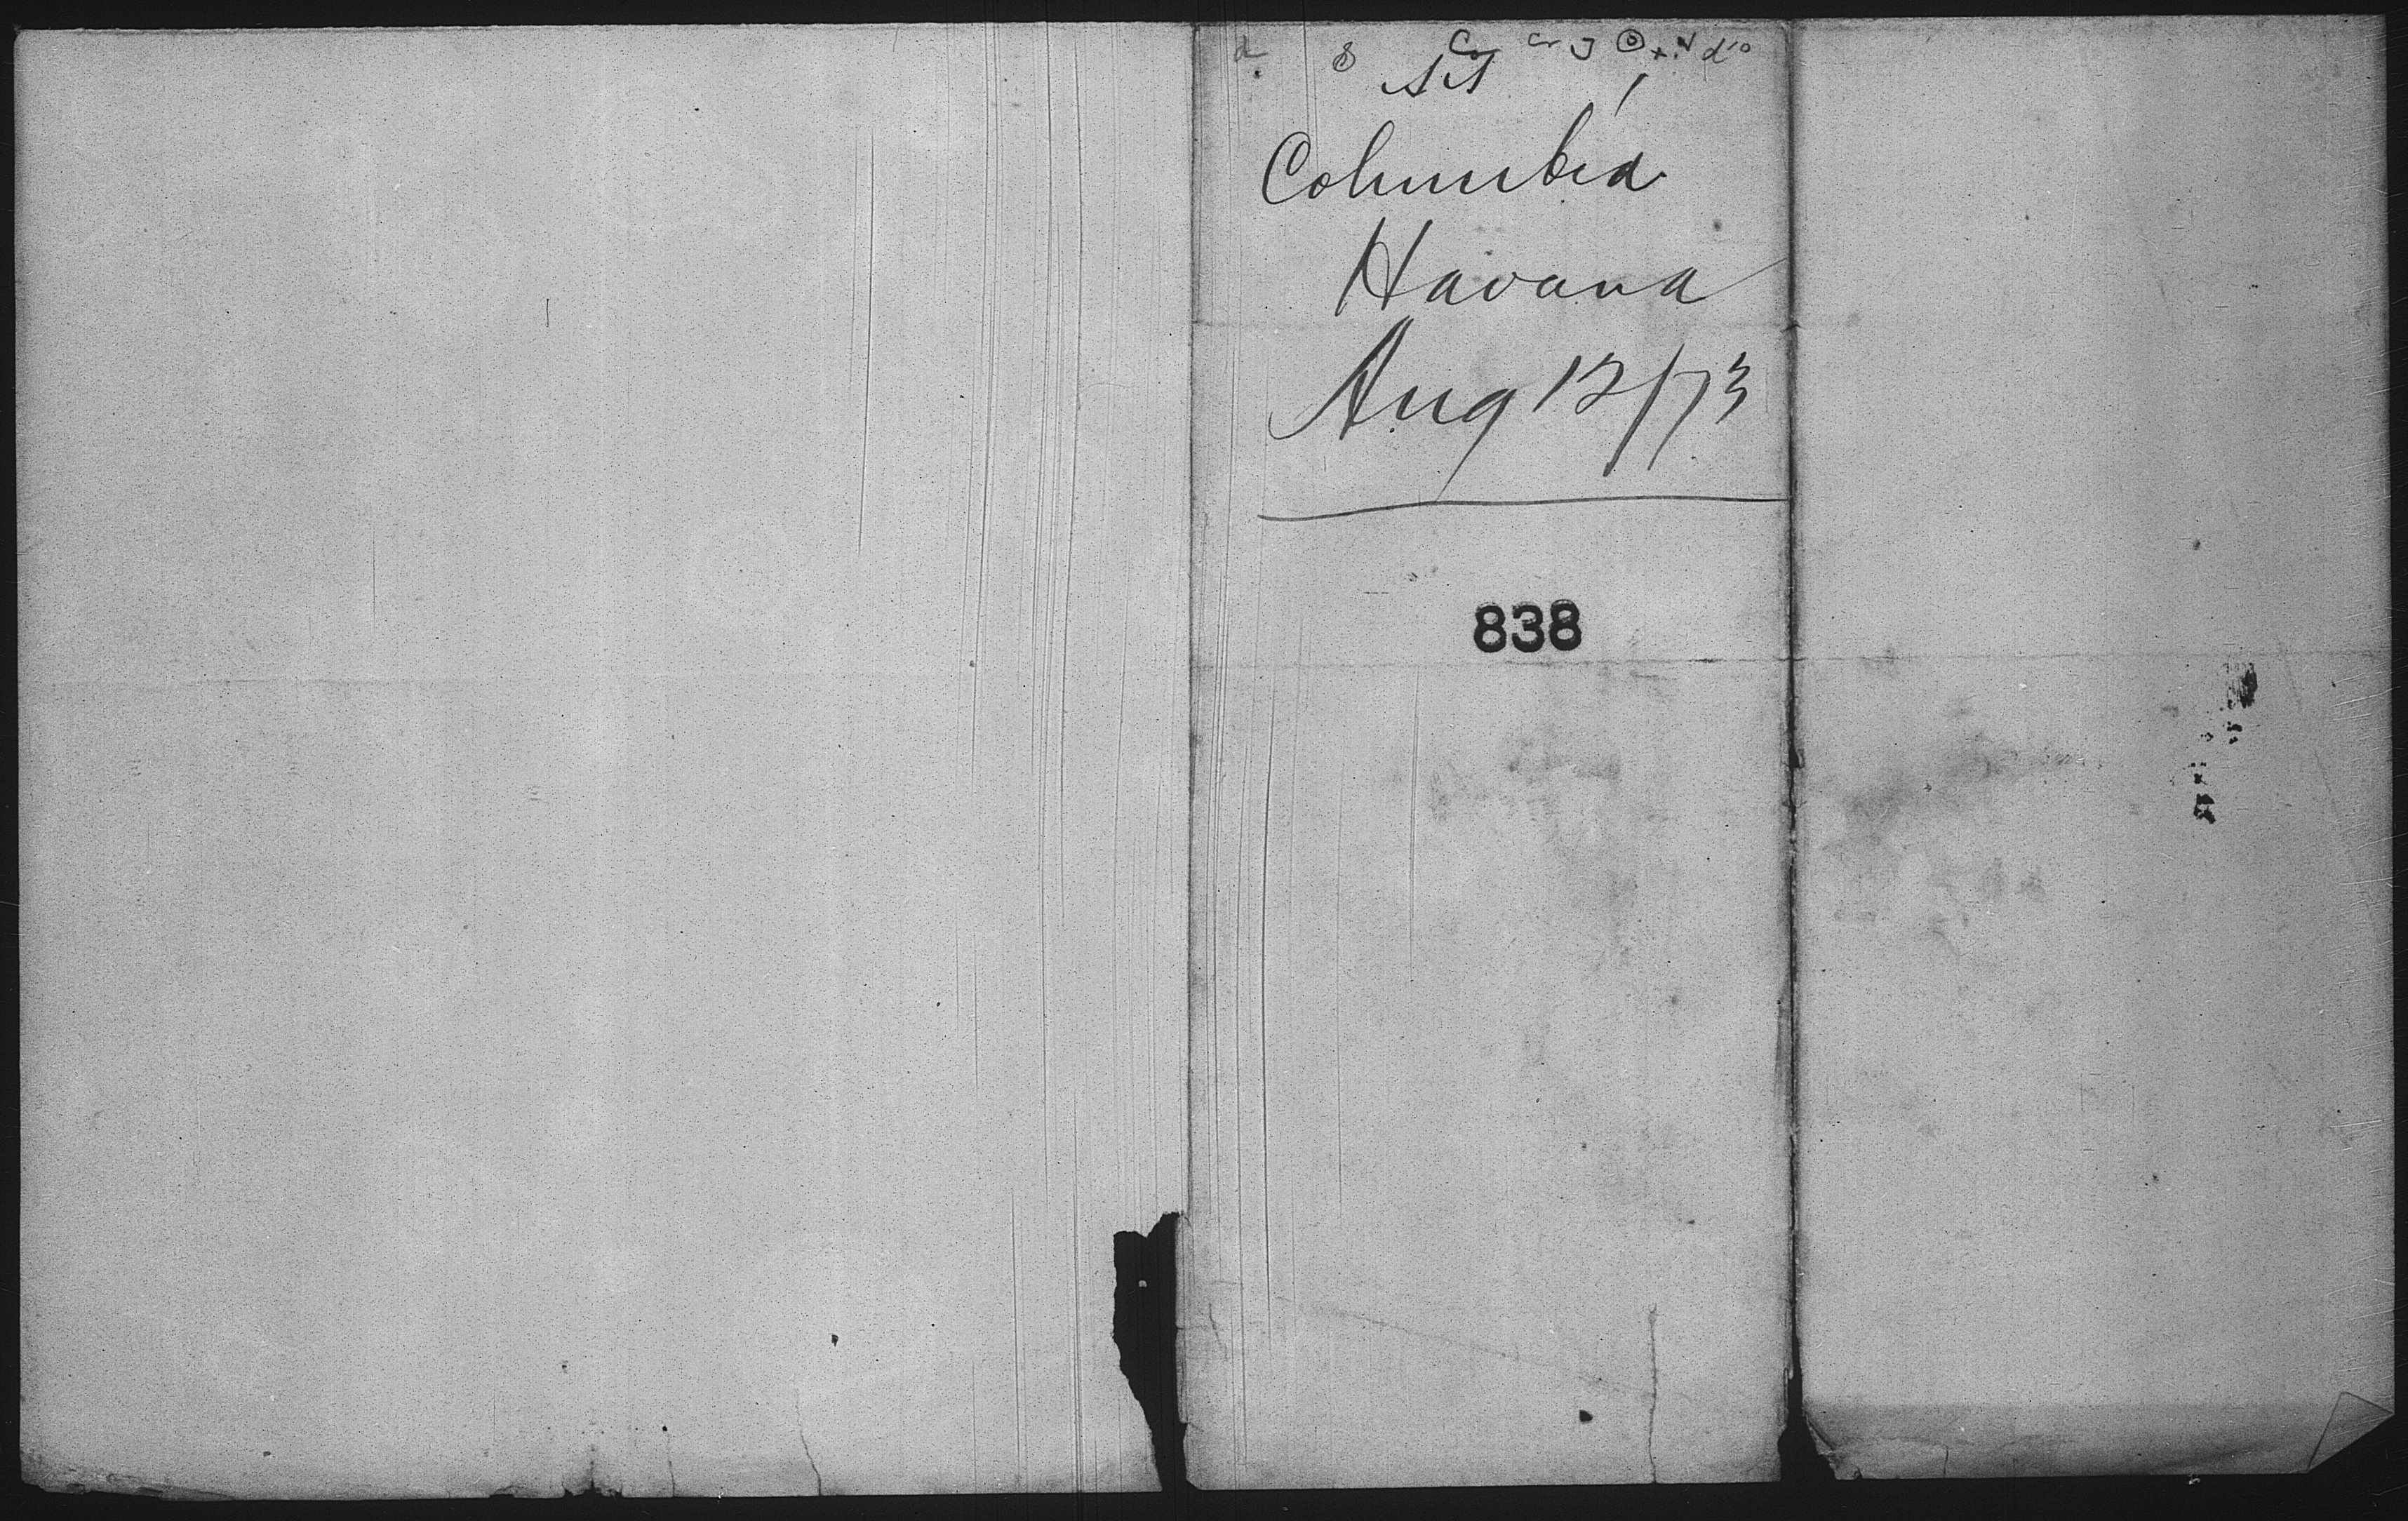 SS
Columbia
Havana
Aug 12/73
838